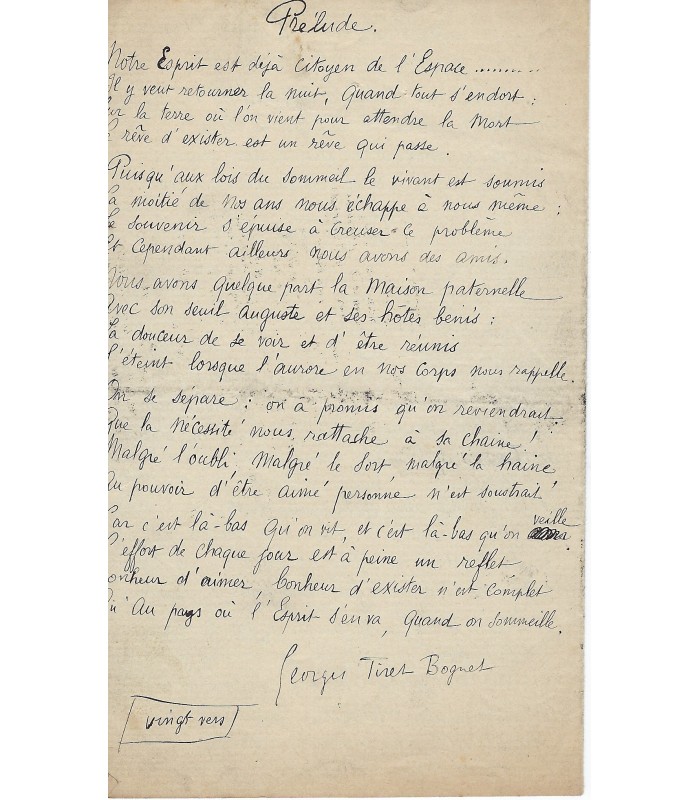 Prélude.
Notre Esprit est déjà citoyen de l'Espace..........
Il y veut retourner la nuit, Quand tout s'endort :
Sur la terre où l'on vient pour attendre la Mort
rêve d'exister est un rêve qui passe.
Puisqu'aux lois du sommeil le vivant est soumis
La moitié de nos ans nous échappe à nous même :
Le souvenir s'épuise à creuser ce problème
Et cependant ailleurs nous avons des amis.
Nous avons quelque part la Maison paternelle
Avec son seuil auguste et ses hôtes benis :
La douceur de se voir et d'être réunis
S'éteint lorsque l'aurore en nos corps nous rappelle.
On se sépare : on a promis qu'on reviendrait.
Que la nécessité nous rattache à sa chaine !
Malgré l'oubli, Malgré le sort malgré la haine
Au pouvoir d'être aimé personne n'est soustrait
Car c'est là-bas qu'on vit, et c'est là-bas qu'on veille
L'effort de chaque jour est à peine un reflet
Bonheur d'aimer, bonheur d'exister n'est complet
Qu'Au pays où l'Esprit s'en va, Quand on sommeille.
Georges Tiret Bognet
vingt vers